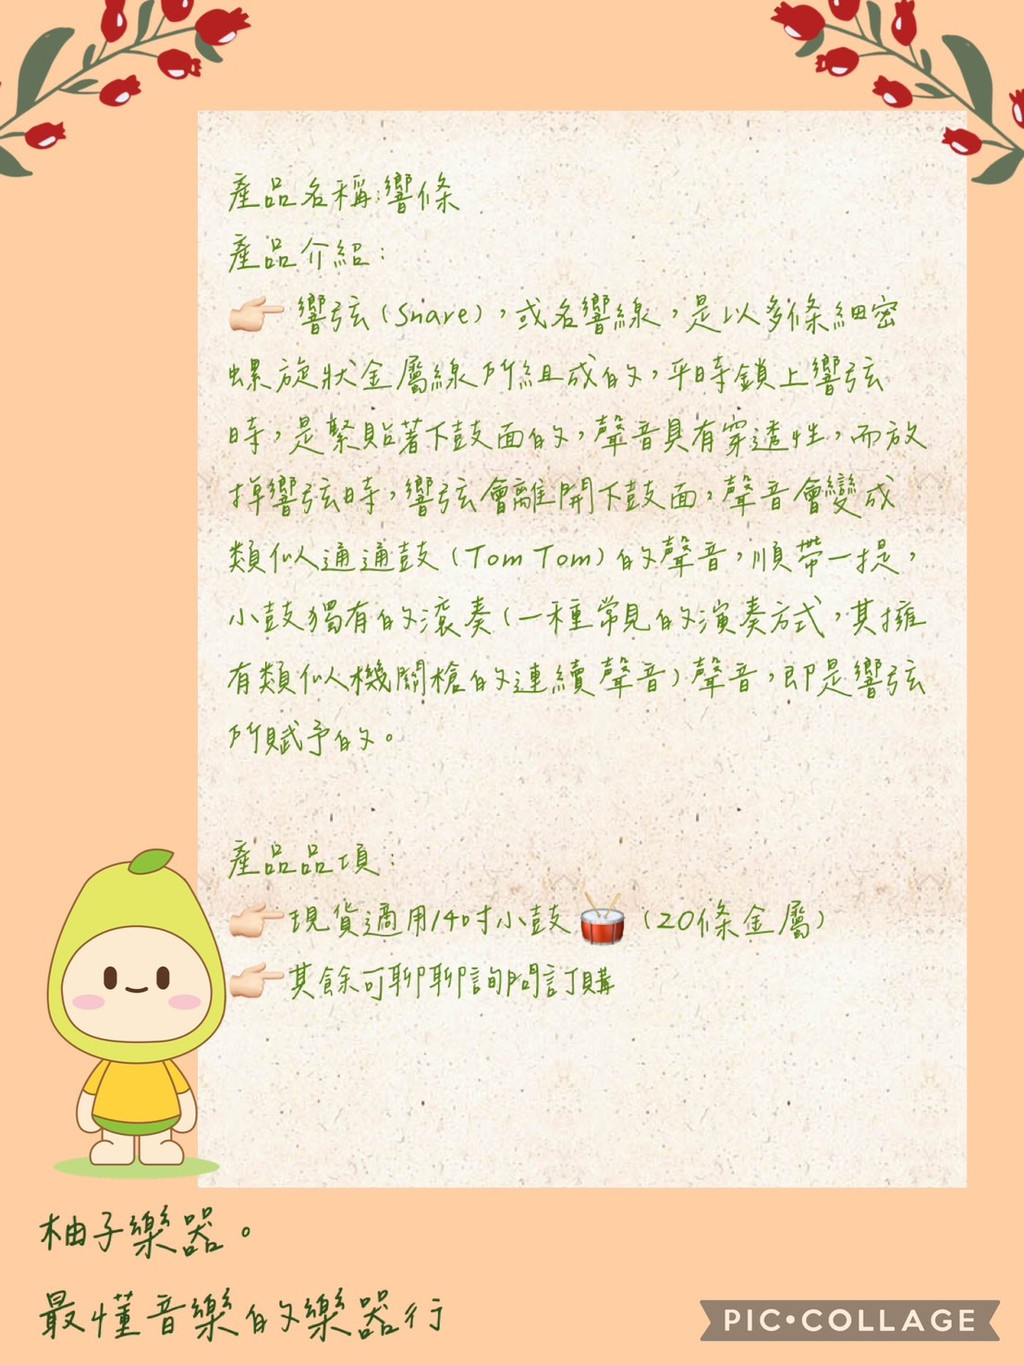 產品名稱:響條
產品介紹:
響弦(Snare),或名響線,是以多條細密
螺旋狀金屬線所組成的,平時鎖上響弦
時,是緊貼著下鼓面的,聲音具有穿透性,而放
掉響弦時,響弦會離開下鼓面,聲音會變成
類似通通鼓(Tom Tom)的聲音,順帶一提,
小鼓獨有的滾奏(一種常見的演奏方式,其擁
有類似機關槍的連續聲音)聲音,即是響弦
所賦予的。
產品品項:
現貨適用14吋小鼓(20條金屬)
其餘可聊聊詢問訂購
柚子樂器。
最懂音樂的樂器行
PIC•COLLAGE